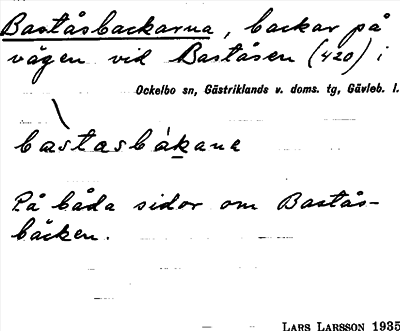 Baståsbackarna, backar på
vägen vid Baståsen (420) i
Ockelbo sn, Gästriklands v. doms. tg, Gävleb. l.
bàstasbákana
På båda sidor om Bastås-
bäcken.
LARS LARSSON 1935